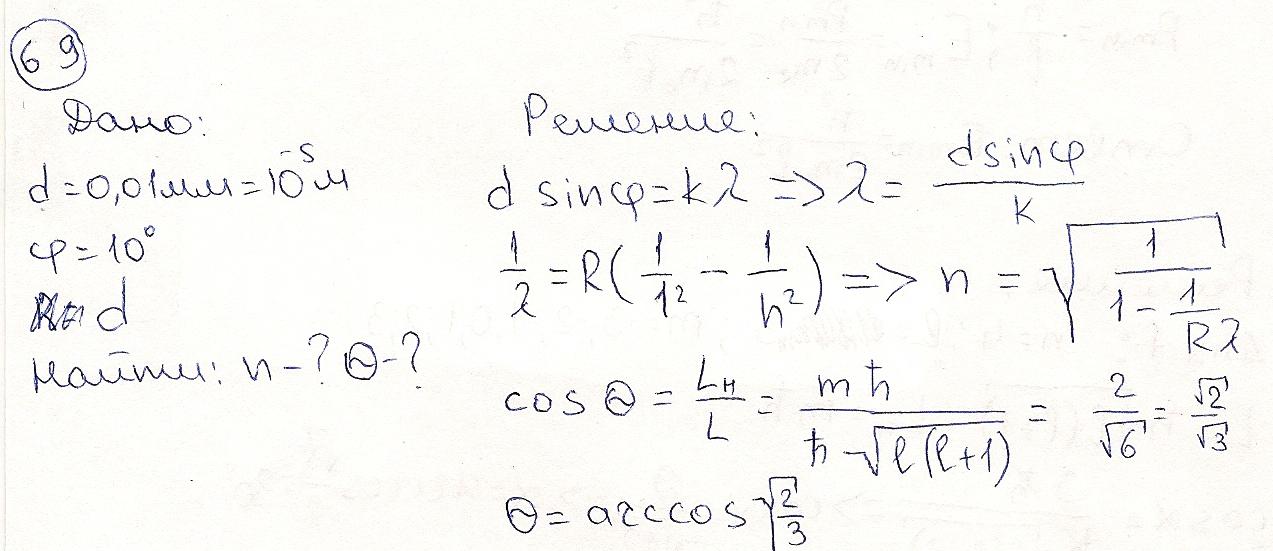 69
Дано:
d=0,01мм=10⁻⁵м
φ=10°
d
Найти: n-? Θ-?
Решение:
d sinφ=kλ => λ= d sinφ / k
1/λ = R(1/1² - 1/n²) => n = √(1/(1 - 1/(Rλ)))
cos Θ = L_H/L = mħ / (ħ √(l(l+1))) = 2/√6 = √2/√3
Θ = arccos √(2/3)